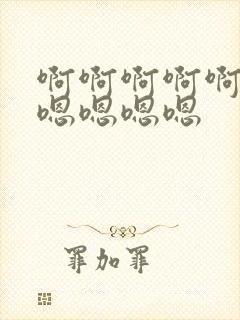 啊啊啊啊啊
嗯嗯嗯嗯
罪加罪